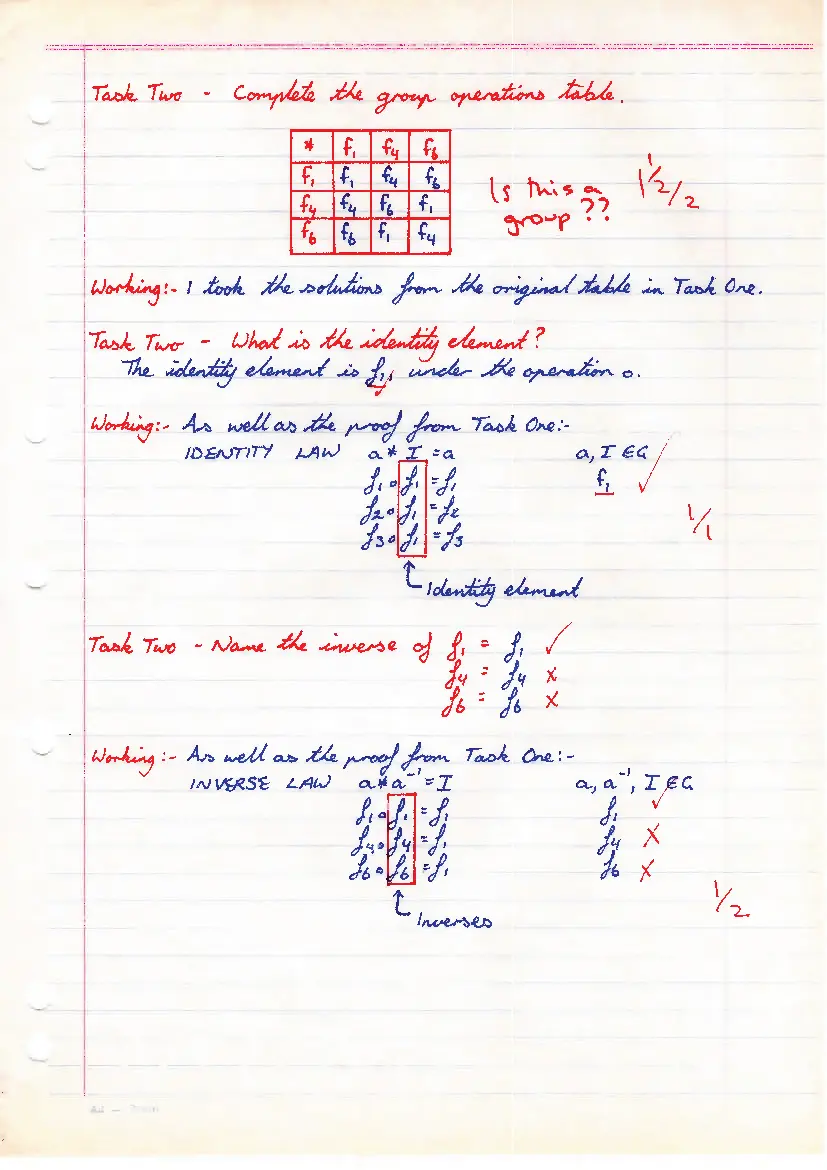 Task Two - Complete the group operations table.
* f₁ f₄ f₆
f₁ f₁ f₄ f₆
f₄ f₄ f₆ f₁
f₆ f₆ f₁ f₄
Is this a group??
1½/2
Working:- I took the solutions from the original table in Task One.
Task Two - What is the identity element?
The identity element is f₁, under the operation o.
Working:- As well as the proof from Task One:-
IDENTITY LAW a * I = a a, I ∈ G ✓
f₁ o f₁ = f₁ f₁ ✓
f₂ o f₁ = f₂ 1/1
f₃ o f₁ = f₃
Identity element
Task Two - Name the inverse of f₁ = f₁ ✓
f₄ = f₄ x
f₆ = f₆ x
Working:- As well as the proof from Task One:-
INVERSE LAW a * a⁻¹ = I a, a⁻¹, I ∈ G
f₁ o f₁ = f₁ f₁ ✓
f₄ o f₄ = f₁ f₄ x
f₆ o f₆ = f₁ f₆ x
1/2
Inverses